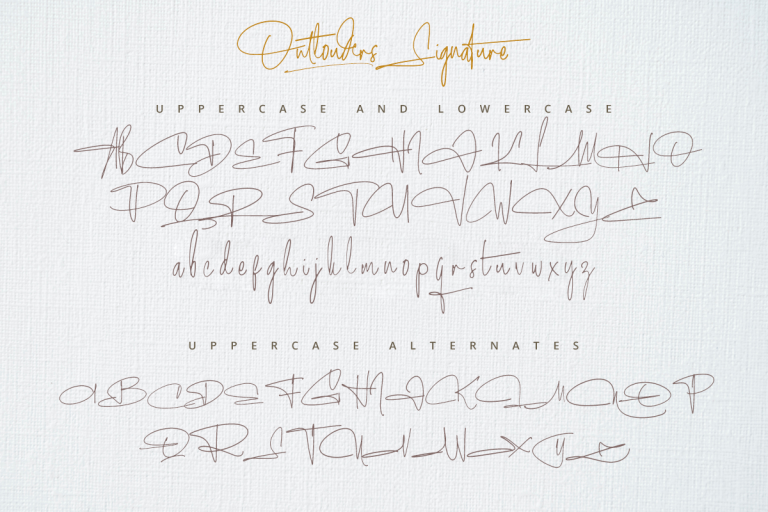 Outlouders Signature
UPPERCASE AND LOWERCASE
ABCDEFGHIJKLMNO
PQRSTUVWXYZ
abcdefghijklmnopqrstuvwxyz
UPPERCASE ALTERNATES
ABCDEFGHIJKLMNOP
QRSTUVWXYZ